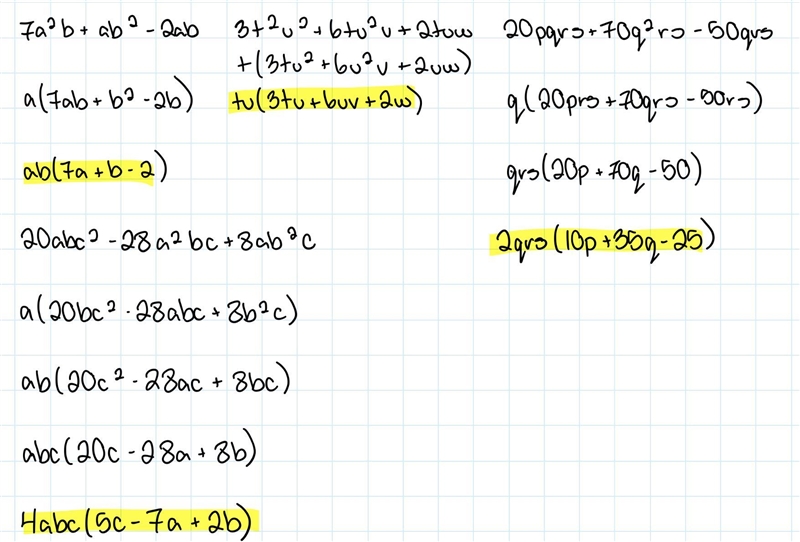 7a²b + ab² - 2ab
a(7ab + b² - 2b)
ab(7a + b - 2)
20abc² - 28a²bc + 8ab²c
a(20bc² - 28abc + 8b²c)
ab(20c² - 28ac + 8bc)
abc(20c - 28a + 8b)
4abc(5c - 7a + 2b)
3t²u² + 6tu²v + 2tuw
t(3tu² + 6u²v + 2uw)
tu(3tu + 6uv + 2w)
20pqrs + 70q²rs - 50qrs
q(20prs + 70qrs - 50rs)
qrs(20p + 70q - 50)
2qrs(10p + 35q - 25)